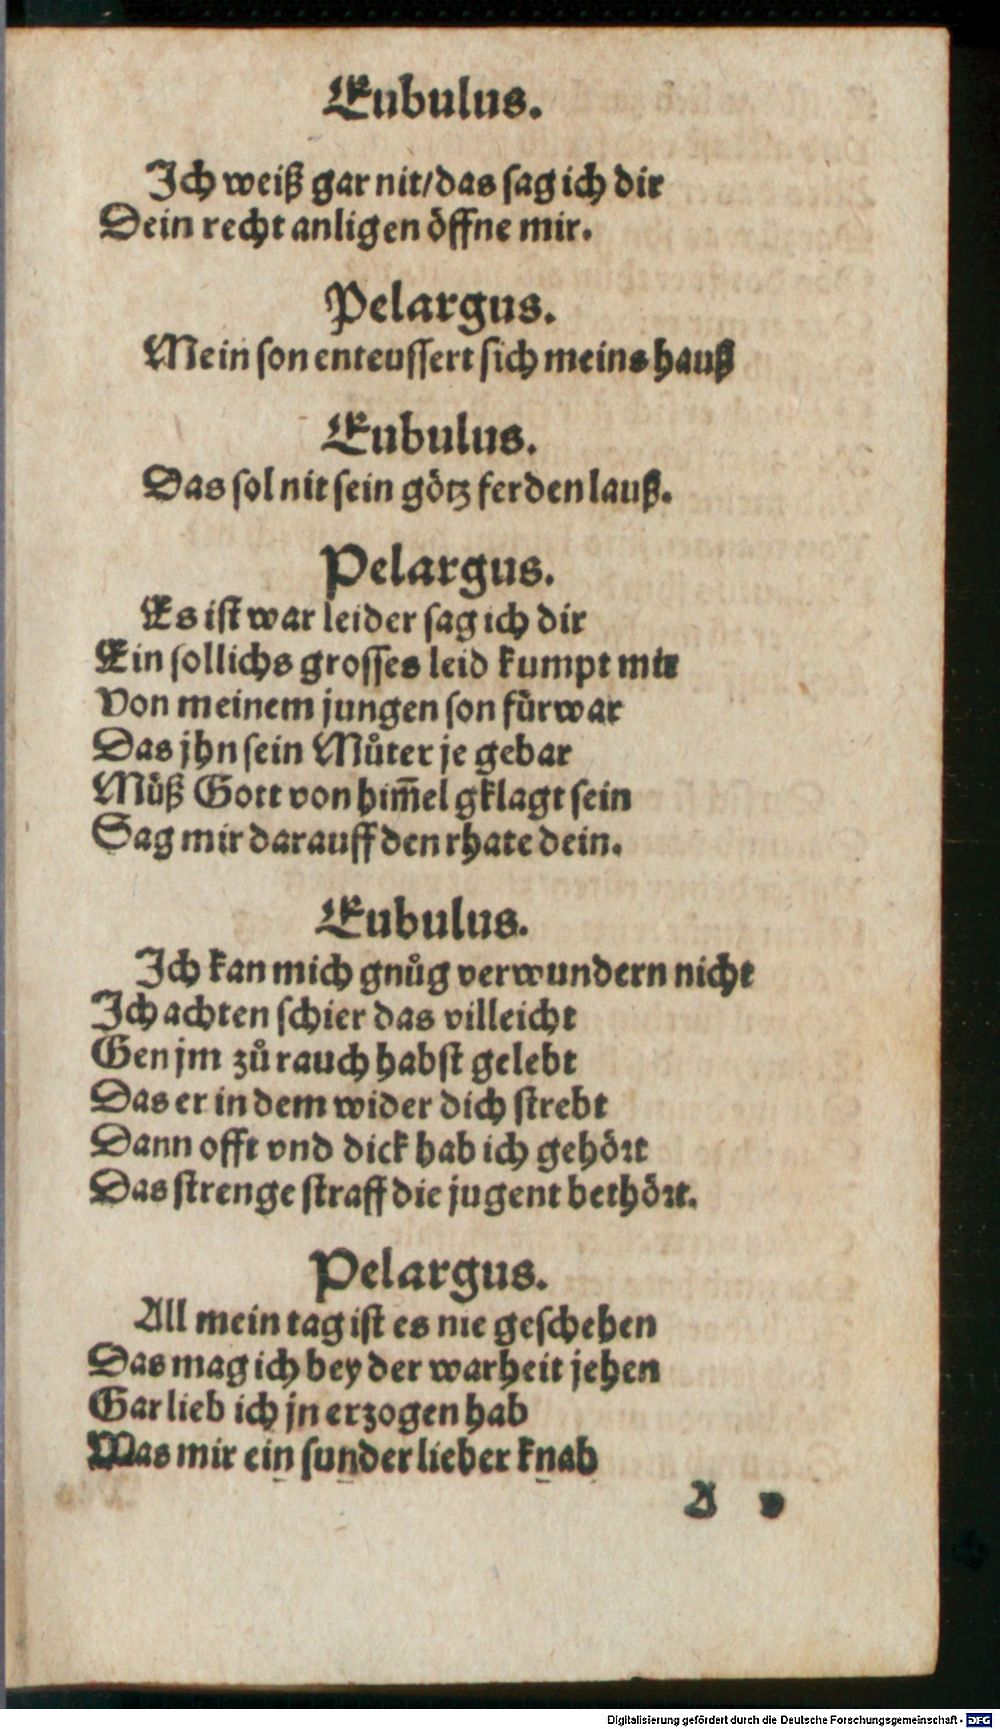 Eubulus.
Ich weiß gar nit/das sag ich dir
Dein recht anligen öffne mir.
Pelargus.
Mein son enteussert sich meins hauß
Eubulus.
Das sol nit sein götz ferden lauß.
Pelargus.
Es ist war leider sag ich dir
Ein sollichs grosses leid kumpt mir
Von meinem jungen son fürwar
Das jhn sein Můter je gebar
Můß Gott von him̄el gklagt sein
Sag mir darauff den rhate dein.
Eubulus.
Ich kan mich gnůg verwundern nicht
Ich achten schier das villeicht
Gen jm zů rauch habst gelebt
Das er in dem wider dich strebt
Dann offt vnd dick hab ich gehört
Das strenge straff die jugent bethört.
Pelargus.
All mein tag ist es nie geschehen
Das mag ich bey der warheit jehen
Gar lieb ich jn erzogen hab
Was mir ein sunder lieber knab
A v
Digitalisierung gefördert durch die Deutsche Forschungsgemeinschaft - DFG